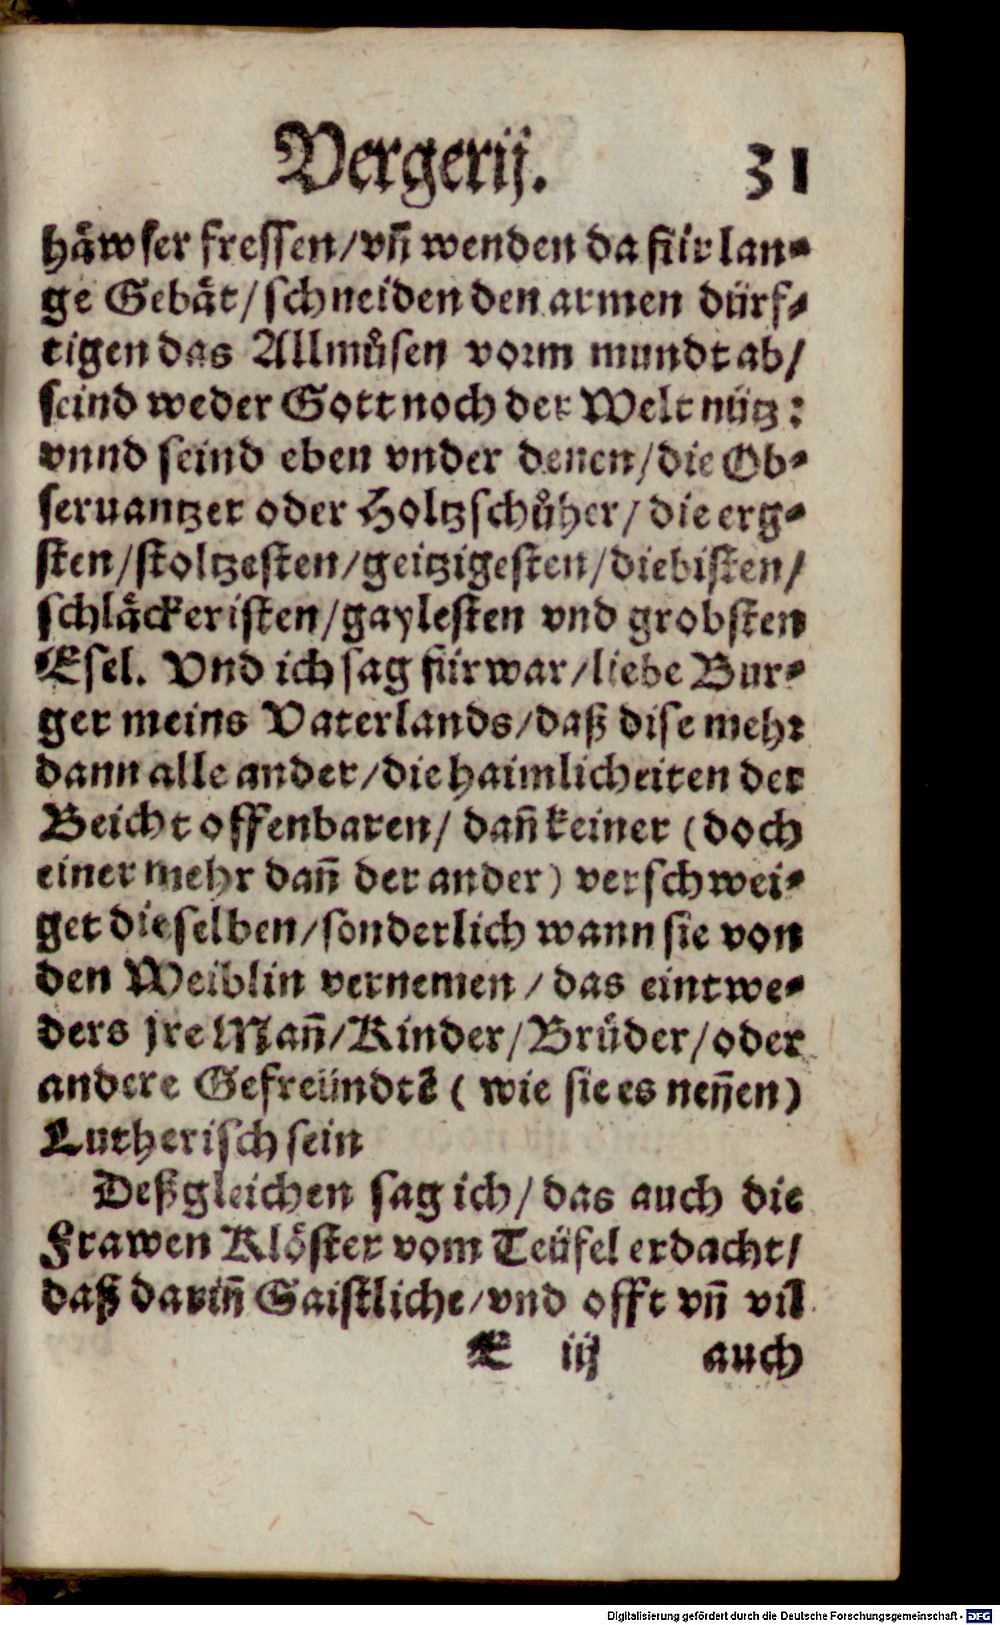 Vergerij. 31
häwser fressen/vñ wenden da für lan⸗
ge Gebät/schneiden den armen dürf⸗
tigen das Allmůsen vorm mundt ab/
seind weder Gott noch der Welt nütz:
vnnd seind eben vnder denen/die Ob⸗
seruantzer oder Holtzschůher/die erg⸗
sten/stoltzesten/geitzigesten/diebisten/
schläckeristen/gaylesten vnd grobsten
Esel. Vnd ich sag fürwar/liebe Bur⸗
ger meins Vaterlands/daß dise mehr
dann alle ander/die haimlicheiten der
Beicht offenbaren/dañ keiner (doch
einer mehr dañ der ander) verschwei⸗
get dieselben/sonderlich wann sie von
den Weiblin vernemen/das eintwe⸗
ders jre Mañ/Kinder/Brüder/oder
andere Gefreündtẽ (wie sie es neñen)
Lutherisch sein
Deßgleichen sag ich/das auch die
Frawen Klöster vom Teüfel erdacht/
daß dariñ Gaistliche/vnd offt vñ vil
E iij auch
Digitalisierung gefördert durch die Deutsche Forschungsgemeinschaft - DFG